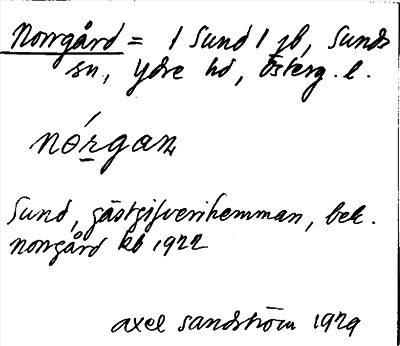 Norrgård = 1 Sund 1 jb, Sunds
sn, Ydre hd, Österg. l.
nórgan
Sund, gästgifverihemman, bek.
Norrgård kb 1922
Axel Sandström 1929